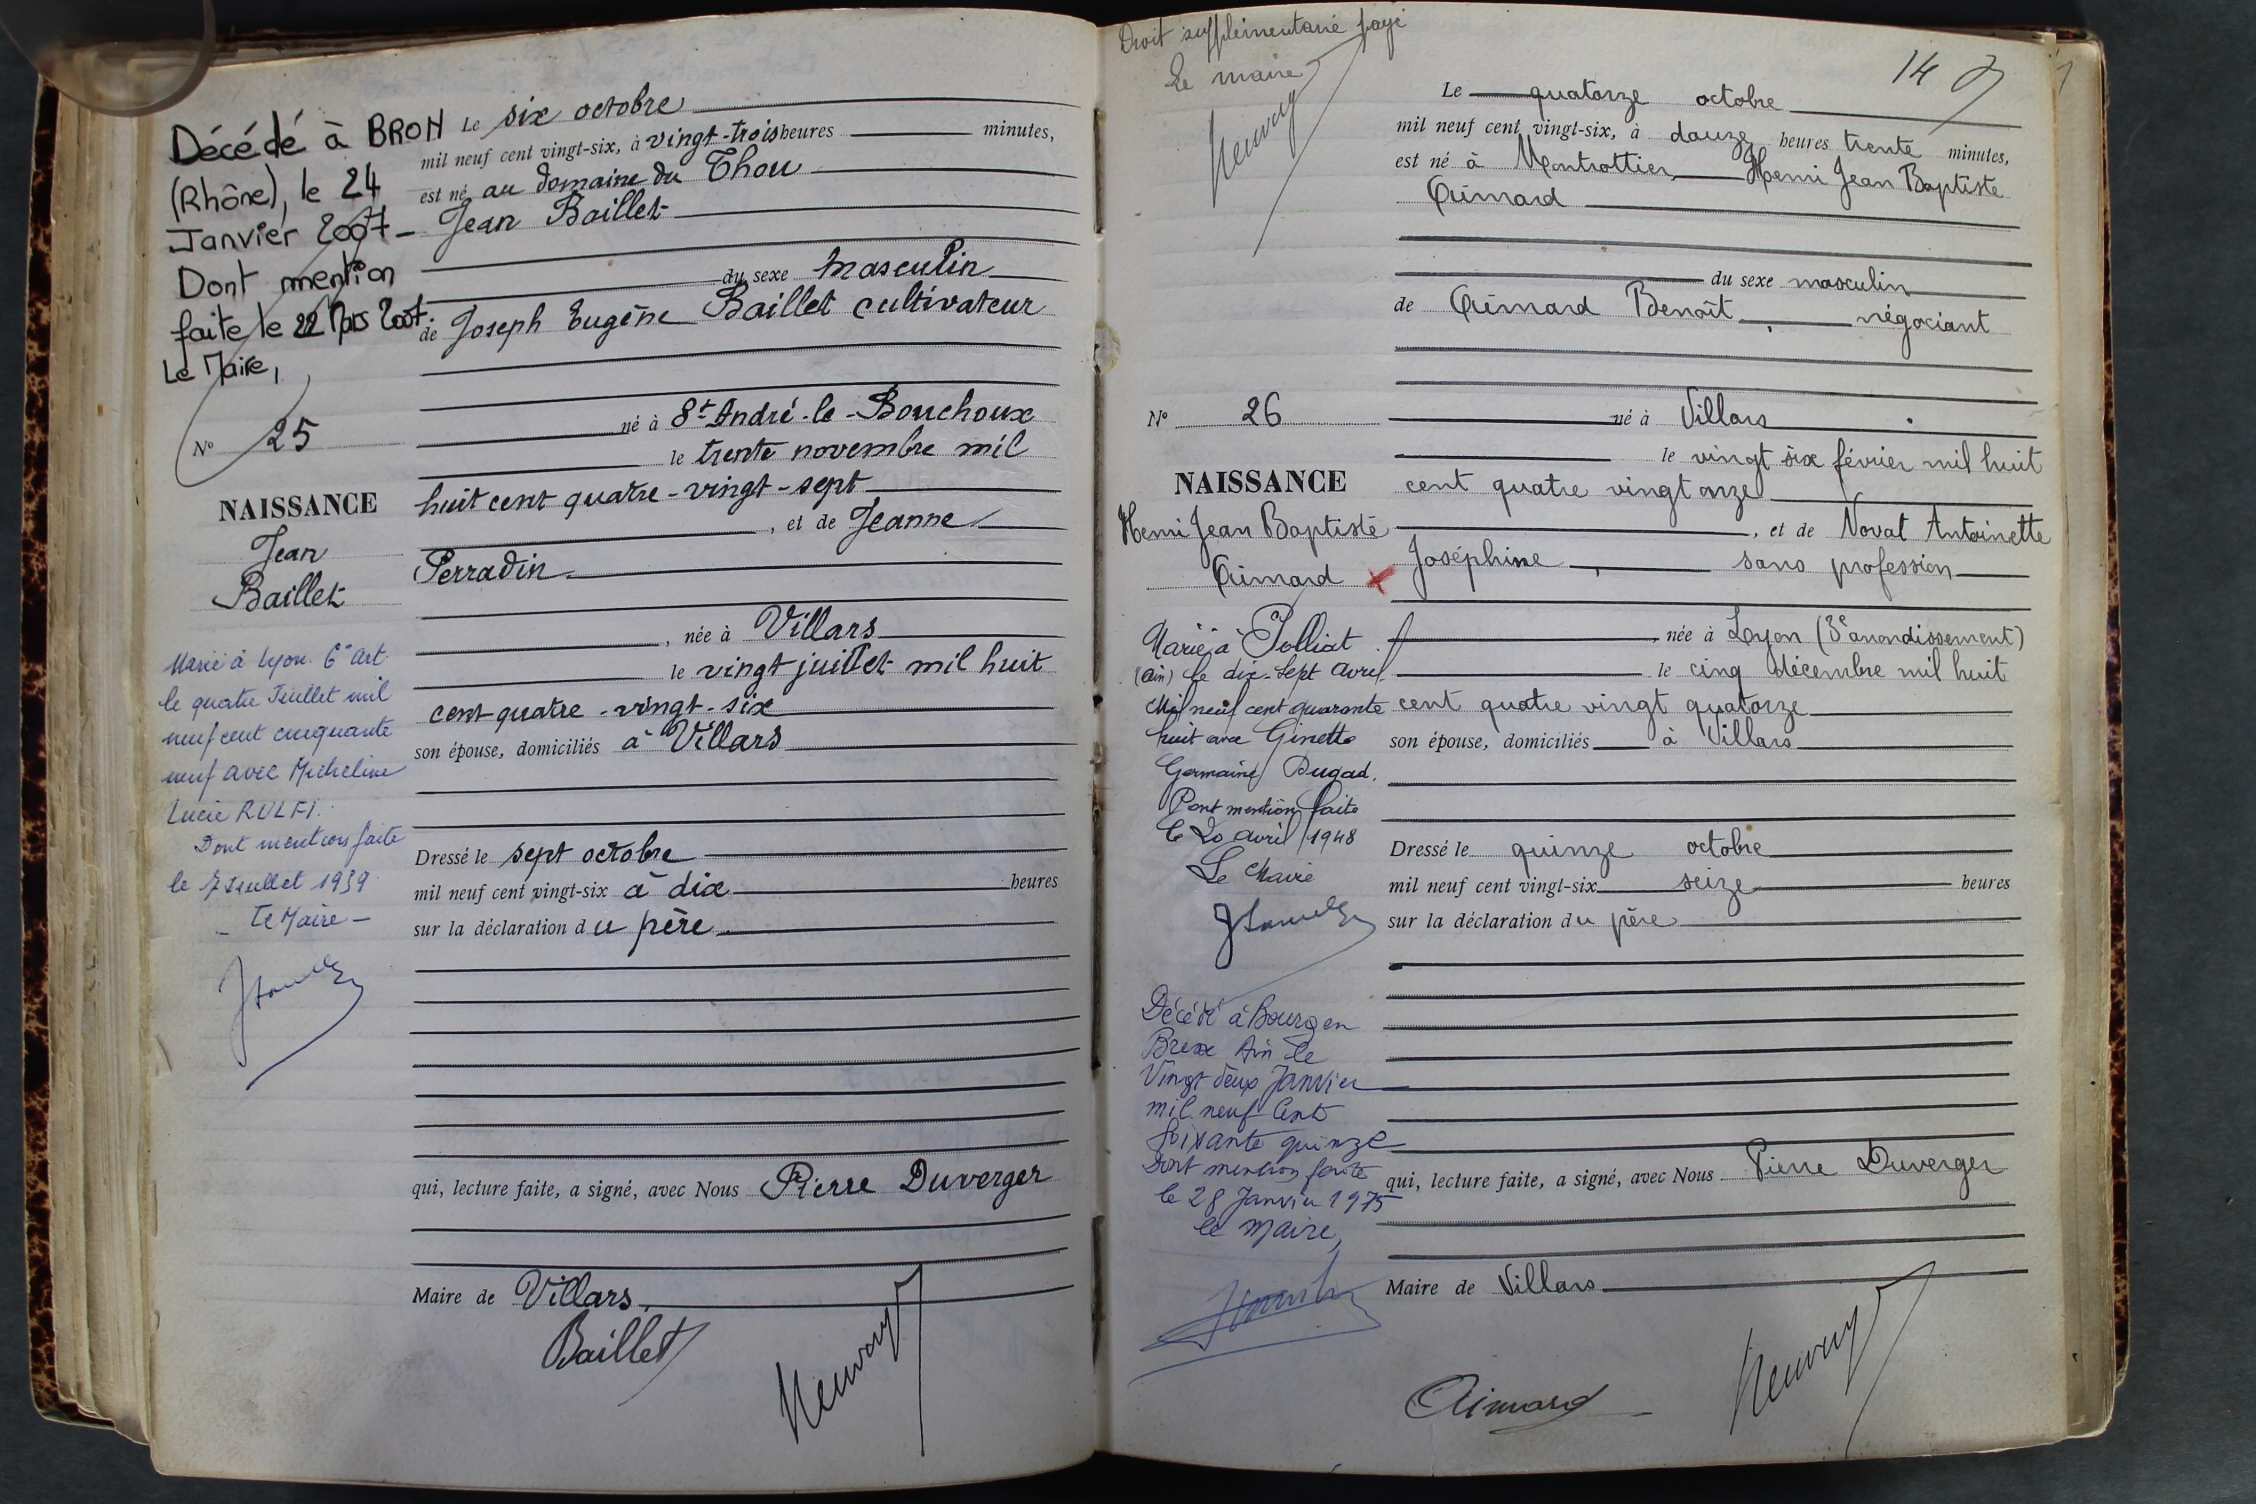 Décédé à BRON
(Rhône), le 24
Janvier 2007 -
Dont mention
faite le 22 Mars 2007.
Le Maire,
N° 25
NAISSANCE
Jean
Baillet
Marié à Lyon 6e Art
le quatre Juillet mil
neuf cent cinquante
neuf avec Micheline
Lucie RULFI.
Dont mention faite
le 7 Juillet 1959
- Le Maire -
Le six octobre
mil neuf cent vingt-six, à vingt-trois heures minutes,
est né au domaine du Thou
Jean Baillet
du sexe masculin
de Joseph Eugène Baillet cultivateur
né à St André-le-Bouchoux
le trente novembre mil
huit cent quatre-vingt-sept
, et de Jeanne
Perradin
, née à Villars
le vingt juillet mil huit
cent quatre-vingt-six
son épouse, domiciliés à Villars
Dressé le sept octobre
mil neuf cent vingt-six à dix heures
sur la déclaration du père
qui, lecture faite, a signé, avec Nous Pierre Duverger
Maire de Villars
Baillet
Droit supplémentaire payé
Le maire
14
N° 26
NAISSANCE
Henri Jean Baptiste
Aimard x
Marié à Polliat
(Ain) le dix-sept avril
Mil neuf cent quarante
huit avec Ginette
Germaine Dugad.
Dont mention faite
le 20 avril 1948
Le Maire
Décédé à Bourg en
Bresse Ain le
Vingt deux Janvier
mil neuf Cent
soixante quinze
Dont mention faite
le 28 Janvier 1975
le Maire,
Le quatorze octobre
mil neuf cent vingt-six, à douze heures trente minutes,
est né à Montrottier Henri Jean Baptiste
Aimard
du sexe masculin
de Aimard Benoît, négociant
né à Villars
le vingt six février mil huit
cent quatre vingt onze
, et de Novat Antoinette
Joséphine, sans profession
, née à Lyon (3e arrondissement)
le cinq décembre mil huit
cent quatre vingt quatorze
son épouse, domiciliés à Villars
Dressé le quinze octobre
mil neuf cent vingt-six seize heures
sur la déclaration du père
qui, lecture faite, a signé, avec Nous Pierre Duverger
Maire de Villars
Aimard